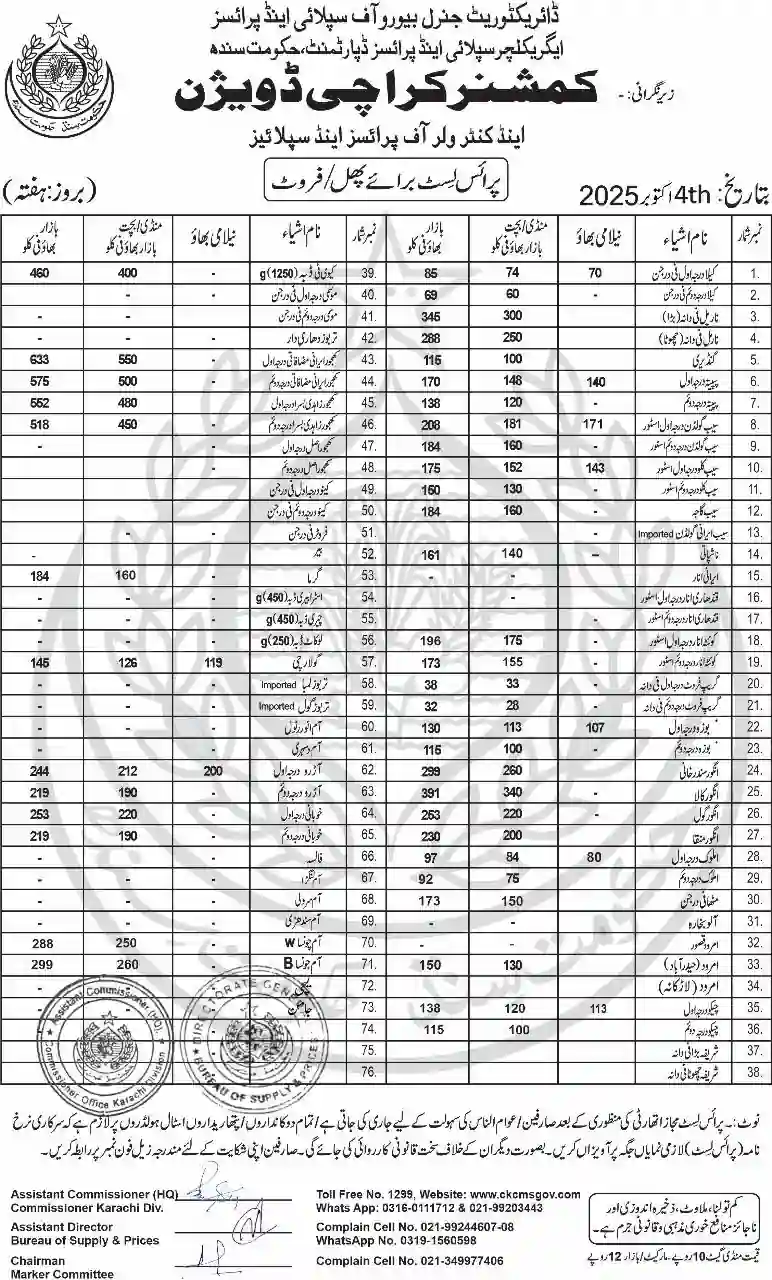 ڈائریکٹوریٹ جنرل بیورو آف سپلائی اینڈ پرائسز
ایگریکلچر سپلائی اینڈ پرائسز ڈپارٹمنٹ، حکومت سندھ
زیر نگرانی: - کمشنر کراچی ڈویژن
اینڈ کنٹرولر آف پرائسز اینڈ سپلائیز
بتاریخ: 4th اکتوبر 2025 پرائس لسٹ برائے پھل/فروٹ (بروز: ہفتہ)
نمبر شمار نام اشیاء نیلامی بھاؤ منڈی/بچت بازار بھاؤ فی کلو بازار بھاؤ فی کلو نمبر شمار نام اشیاء نیلامی بھاؤ منڈی/بچت بازار بھاؤ فی کلو بازار بھاؤ فی کلو
1. کیلا درجہ اول فی درجن 70 74 85 39. کیوی فی ڈبہ (1250)g - 400 460
2. کیلا درجہ دوئم فی درجن - 60 69 40. موسمی درجہ اول فی درجن - - -
3. ناریل فی دانہ (بڑا) 300 345 41. موسمی درجہ دوئم فی درجن - -
4. ناریل فی دانہ (چھوٹا) 250 288 42. تربوز دھاری دار - - -
5. گنڈیری 100 115 43. کھجور ایرانی مضافاتی درجہ اول - 550 633
6. پپیتہ درجہ اول 140 148 170 44. کھجور ایرانی مضافاتی درجہ دوئم - 500 575
7. پپیتہ درجہ دوئم - 120 138 45. کھجور زاہدی بسرا درجہ اول - 480 552
8. سیب گولڈن درجہ اول اسٹور 171 181 208 46. کھجور زاہدی بسرا درجہ دوئم - 450 518
9. سیب گولڈن درجہ دوئم اسٹور - 160 184 47. کھجور اصل درجہ اول -
10. سیب کلو درجہ اول اسٹور 143 152 175 48. کھجور اصل درجہ دوئم -
11. سیب کلو درجہ دوئم اسٹور - 130 150 49. کینو درجہ اول فی درجن
12. سیب گاجہ - 160 184 50. کینو درجہ دوئم فی درجن - -
13. سیب ایرانی گولڈن Imported - 51. فروٹر فی درجن - -
14. ناشپاتی - 140 161 52. بیر -
15. ایرانی انار - - 53. گرما - 160 184
16. قندھاری انار درجہ اول اسٹور 54. اسٹرابیری ڈبہ (450)g
17. قندھاری انار درجہ دوئم اسٹور - 55. چیری ڈبہ (450)g
18. کوئٹہ انار درجہ اول اسٹور - 175 196 56. لوکاٹ ڈبہ (250)g - - -
19. کوئٹہ انار درجہ دوئم اسٹور - 155 173 57. گولارچی 119 126 145
20. گریپ فروٹ درجہ اول فی دانہ - 33 38 58. تربوز لمبا Imported - -
21. گریپ فروٹ درجہ دوئم فی دانہ - 28 32 59. تربوز گول Imported - - -
22. بوزہ درجہ اول 107 113 130 60. آم انور رٹول - - -
23. بوزہ درجہ دوئم - 100 115 61. آم دسہری - - -
24. انگور سندرخانی 260 299 62. آڑو درجہ اول 200 212 244
25. انگور کالا 340 391 63. آڑو درجہ دوئم - 190 219
26. انگور گول 220 253 64. خوبانی درجہ اول - 220 253
27. انگور منقا 200 230 65. خوبانی درجہ دوئم - 190 219
28. املوک درجہ اول 80 84 97 66. فالسہ - - -
29. املوک درجہ دوئم - 75 92 67. آم لنگڑا - - -
30. مٹھا فی درجن - 150 173 68. آم سرولی - - -
31. آلو بخارہ - - 69. آم سندھڑی - - -
32. امرود قصور - - 70. آم چونسا W - 250 288
33. امرود (حیدرآباد) - 130 150 71. آم چونسا B - 260 299
34. امرود (لاڑکانہ) - 72.
35. چیکو درجہ اول 113 120 138 73. جامن
36. چیکو درجہ دوئم - 100 115 74.
37. شریفہ بڑا فی دانہ 75.
38. شریفہ چھوٹا فی دانہ 76.
Assistant Commissioner (HQ).
Commissioner Office Karachi Division
DIRECTORATE GENERAL
BUREAU OF SUPPLY & PRICES
نوٹ:۔ پرائس لسٹ مجاز اتھارٹی کی منظوری کے بعد صارفین/عوام الناس کی سہولت کے لیے جاری کی جاتی ہے/تمام دوکانداروں/پتھاریداروں اسٹال ہولڈروں پر لازم ہے کہ سرکاری نرخ
نامہ (پرائس لسٹ) لازمی نمایاں جگہ پر آویزاں کریں۔ بصورت دیگر ان کے خلاف سخت قانونی کارروائی کی جائے گی۔ صارفین اپنی شکایت کے لئے مندرجہ زیل فون نمبر پر رابطہ کریں۔
Assistant Commissioner (HQ)
Commissioner Karachi Div.
Toll Free No. 1299, Website: www.ckcmsgov.com
Whats App: 0316-0111712 & 021-99203443
Assistant Director
Bureau of Supply & Prices
Complain Cell No. 021-99244607-08
WhatsApp No. 0319-1560598
Chairman
Marker Committee
Complain Cell No. 021-349977406
کم تولنا، ملاوٹ، ذخیرہ اندوزی اور
ناجائز منافع خوری مذہبی و قانونی جرم ہے۔
قیمت منڈی گیٹ 10 روپے۔ مارکیٹ/بازار 12 روپے